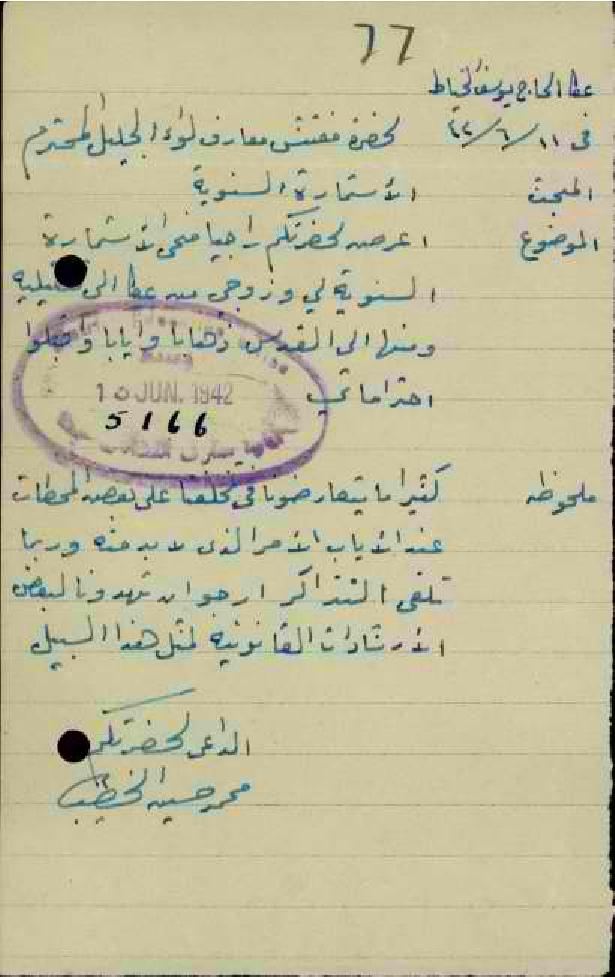 77
عكا الحاج يوسف الخياط
في ١١/٦/٤٢ لحضرة مفتش معارف لواء الجليل المحترم
المبحث الأستمارة السنوية
الموضوع اعرض لحضرتكم راجيا منحي الأستمارة
السنوية لي وزوجي من عكا الى
ومنها الى القدس ذهابا وايابا واقبلوا
احتراماتي
JUN. 1942
5166
ملحوظه كثيرا ما يتعارضونا في تخلفنا على بعض المحطات
عند الأياب الأمر الذي لا بد منه وربما
تلغى التذاكر ارجو ان تزودونا لبعض
الأرشادات القانونية لمثل هذا السبيل
الداعي لحضرتكم
محمد حسين الخطيب